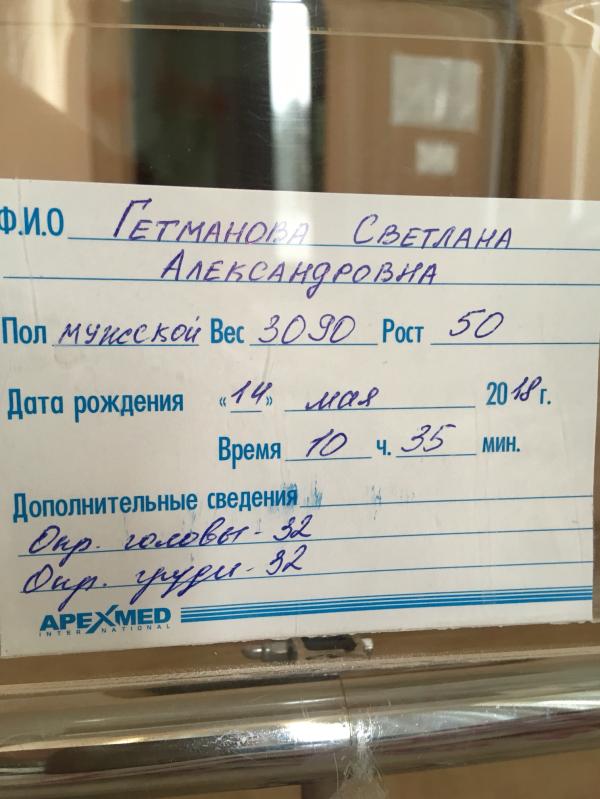 Ф.И.О Гетманова Светлана
Александровна
Пол мужской Вес 3090 Рост 50
Дата рождения «14» мая 2018 г.
Время 10 ч. 35 мин.
Дополнительные сведения
Окр. головы - 32
Окр. груди - 32
APEXMED
INTERNATIONAL